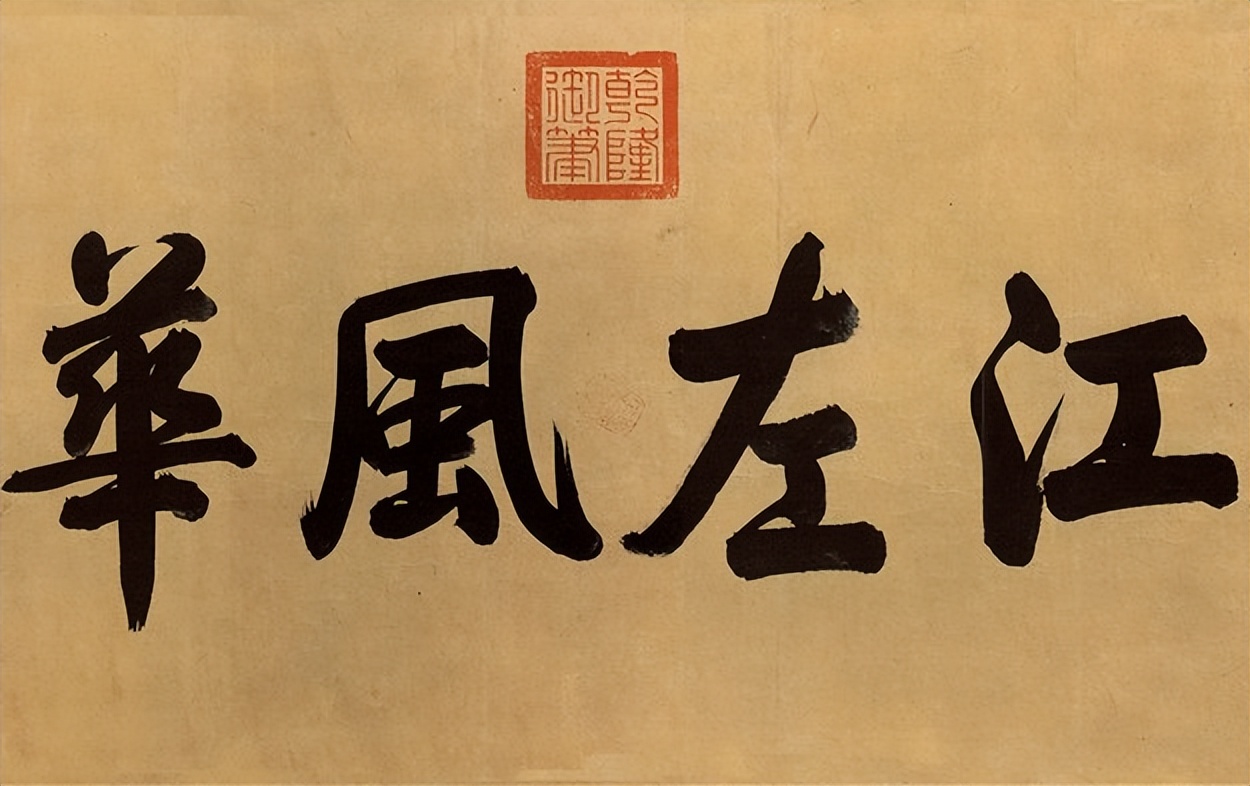 乾隆御筆
江左風華